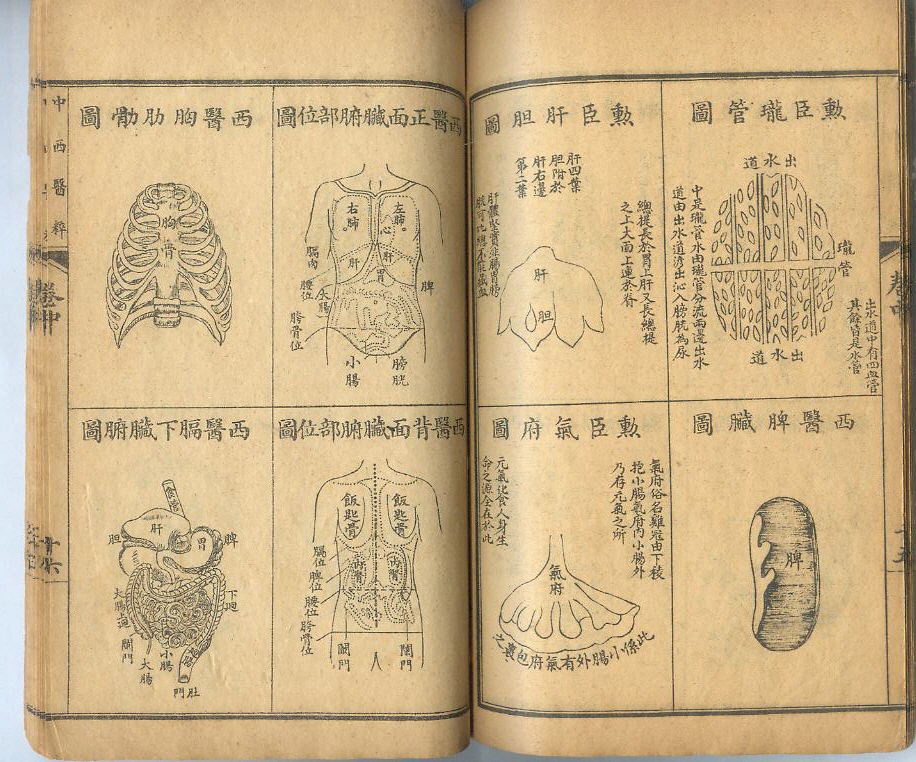 勳臣瓏管圖
出水道
瓏管
出水道中有四血管
其餘皆是水管
中是瓏管水由瓏管分流兩邊出水
道由出水道滲出沁入膀胱為尿
出水道
勳臣肝胆圖
總提長於胃上肝又長總提
之上大面上連於脊
肝四葉
胆附於
肝右邊
第二葉
肝體堅實非腸胃膀
胱可比絕不能藏血
肝
胆
西醫脾臟圖
脾
勳臣氣府圖
氣府俗名雞冠由下稜
抱小腸氣府內小腸外
乃存元氣之所
元氣化食人身生
命之源全在於此
氣府
此係小腸外有氣府包裹之
卷中
十五
西醫正面臟腑部位圖
右肺
左肺
心
肝
肝
胃
膈肉
脾
腰位
大腸
胯骨位
小腸
膀胱
西醫胸肋圖
胸骨
西醫背面臟腑部位圖
飯匙骨
飯匙骨
膈位
脾位
內腎
內腎
腰位
胯骨位
闌門
闌門
西醫膈下臟腑圖
食管
肝
胆
胃
脾
下迴
闌門
大腸
小腸
肛門
中西醫粹
卷中
十六